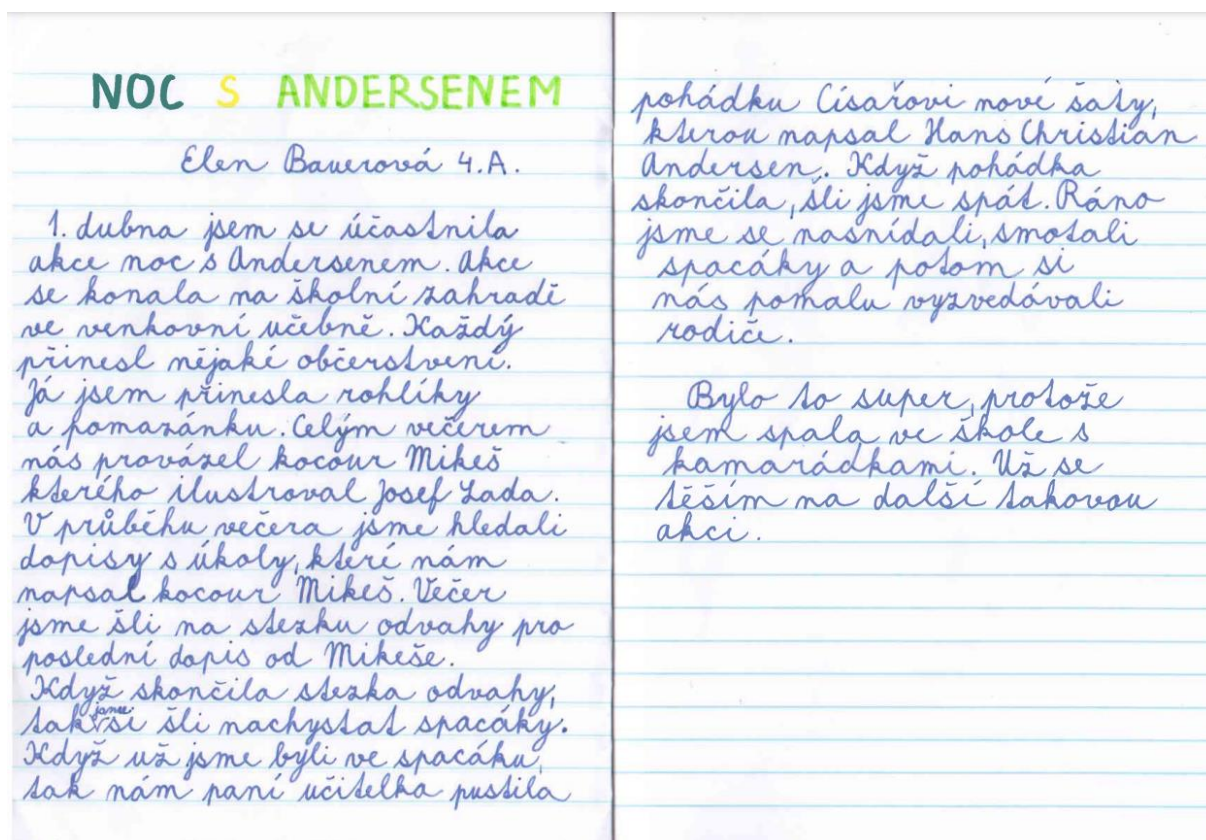 NOC S ANDERSENEM
Elen Bauerová 4.A.
1. dubna jsem se účastnila
akce noc s Andersenem. Akce
se konala na školní zahradě
ve venkovní učebně. Každý
přinesl nějaké občerstvení.
Já jsem přinesla rohlíky
a pomazánku. Celým večerem
nás provázel kocour Mikeš
kterého ilustroval Josef Lada.
V průběhu večera jsme hledali
dopisy s úkoly, které nám
napsal kocour Mikeš. Večer
jsme šli na stezku odvahy pro
poslední dopis od Mikeše.
Když skončila stezka odvahy,
tak jsme si šli nachystat spacáky.
Když už jsme byli ve spacáku,
tak nám paní učitelka pustila
pohádku Císařovi nové šaty,
kterou napsal Hans Christian
Andersen. Když pohádka
skončila, šli jsme spát. Ráno
jsme se nasnídali, smotali
spacáky a potom si
nás pomalu vyzvedávali
rodiče.
Bylo to super, protože
jsem spala ve škole s
kamarádkami. Už se
těším na další takovou
akci.